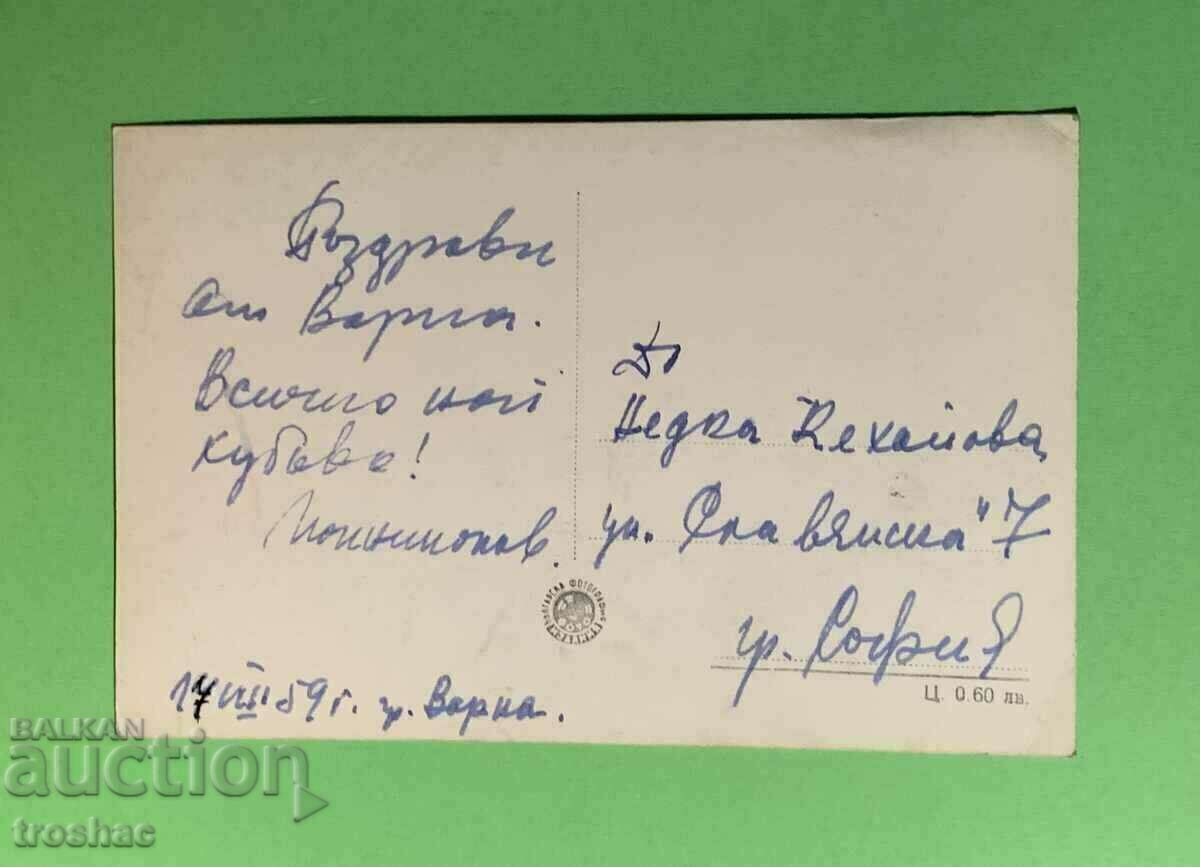 Поздрави
от Варна.
Всичко най
хубаво!
17 VIII 59 г. гр. Варна.
До
Недка Кехайова
ул. "Славянска" 7
гр. София
Ц. 0.60 лв.
BALKAN
auction
troshac